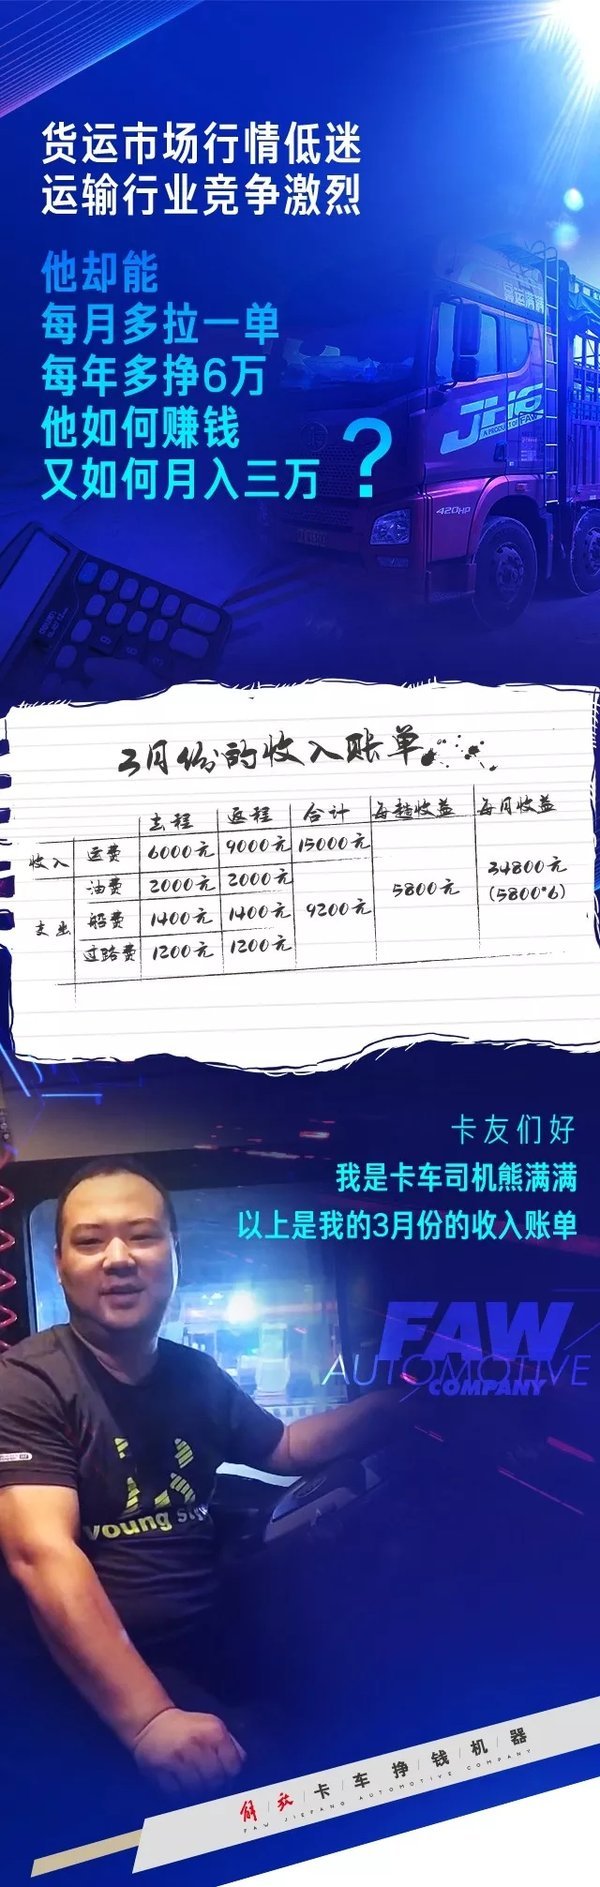 货运市场行情低迷
运输行业竞争激烈
他却能
每月多拉一单
每年多挣6万
他如何赚钱
又如何月入三万？
JH6
A PRODUCT OF FAW
420HP
3月份的收入账单
去程 返程 合计 每趟收益 每月收益
收入 运费 6000元 9000元 15000元
油费 2000元 2000元
支出 船费 1400元 1400元 9200元 5800元 34800元
(5800*6)
过路费 1200元 1200元
卡友们好
我是卡车司机熊满满
以上是我的3月份的收入账单
FAW
AUTOMOTIVE
COMPANY
young style
解放 卡车挣钱机器
FAW JIEFANG AUTOMOTIVE COMPANY